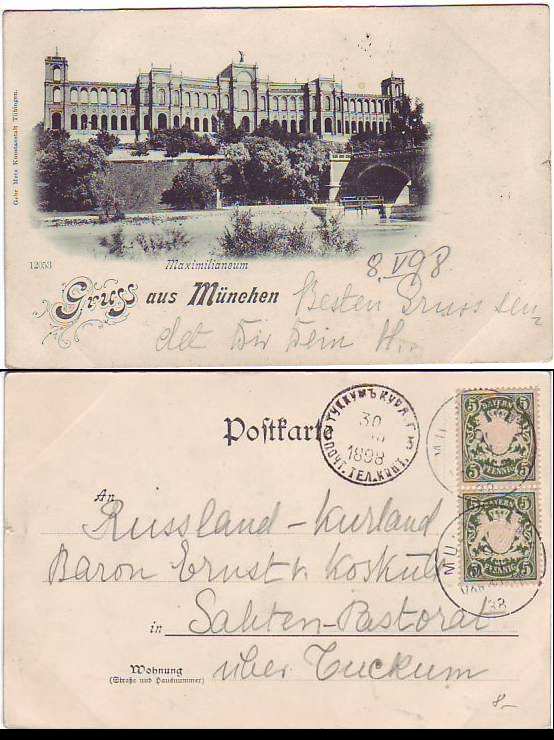 Gebr. Metz Kunstanstalt Tübingen.
12053
Maximilianeum
8. VI 98
Gruss aus München
Besten Gruss sen-
det Dir Dein H..
Postkarte
ТУККУМЪ КУРЛ. Г.
30
1898
ПОЧТ. ТЕЛ. КОНТ.
5 BAYERN 5
5 PFENNIG 5
5 BAYERN 5
5 PFENNIG 5
MÜ
98
An
Russland-Kurland
Baron Ernst v Koskull
in Sahten-Pastorat
Wohnung
(Straße und Hausnummer)
über Tuckum
8-